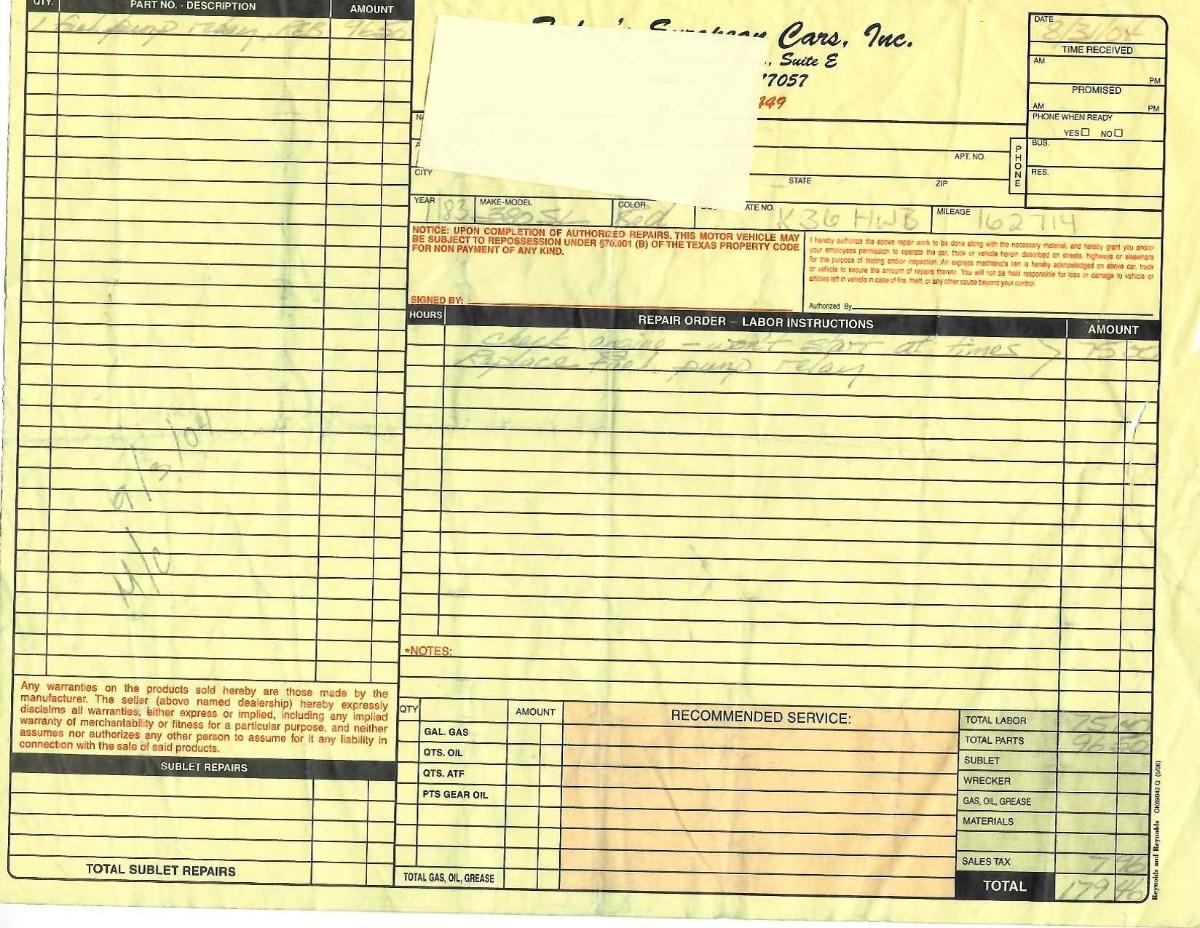 QTY. PART NO. - DESCRIPTION AMOUNT
1 fuel pump relay REB 96.50
European Cars, Inc.
Suite E
77057
DATE 8/31/04
TIME RECEIVED
AM
PM
PROMISED
AM PM
PHONE WHEN READY
YES NO
PHONE
BUS.
RES.
APT. NO.
CITY STATE ZIP
YEAR 83 MAKE-MODEL 380 SL COLOR Red ATE NO. K36 HWB MILEAGE 162714
NOTICE: UPON COMPLETION OF AUTHORIZED REPAIRS, THIS MOTOR VEHICLE MAY
BE SUBJECT TO REPOSSESSION UNDER §70.001 (B) OF THE TEXAS PROPERTY CODE
FOR NON PAYMENT OF ANY KIND.
SIGNED BY:
I hereby authorize the above repair work to be done along with the necessary material, and hereby grant you and/or
your employees permission to operate the car, truck or vehicle herein described on streets, highways or elsewhere
for the purpose of testing and/or inspection. An express mechanic's lien is hereby acknowledged on above car, truck
or vehicle to secure the amount of repairs thereto. You will not be held responsible for loss or damage to vehicle or
articles left in vehicle in case of fire, theft, or any other cause beyond your control.
Authorized By
HOURS REPAIR ORDER – LABOR INSTRUCTIONS AMOUNT
check engine - won't start at times 75.00
Replace Fuel pump relay
9/3/04
M/C
*NOTES:
Any warranties on the products sold hereby are those made by the
manufacturer. The seller (above named dealership) hereby expressly
disclaims all warranties, either express or implied, including any implied
warranty of merchantability or fitness for a particular purpose, and neither
assumes nor authorizes any other person to assume for it any liability in
connection with the sale of said products.
SUBLET REPAIRS
TOTAL SUBLET REPAIRS
QTY AMOUNT
GAL. GAS
QTS. OIL
QTS. ATF
PTS GEAR OIL
TOTAL GAS, OIL, GREASE
RECOMMENDED SERVICE:
TOTAL LABOR 75.00
TOTAL PARTS 96.50
SUBLET
WRECKER
GAS, OIL, GREASE
MATERIALS
SALES TAX 7.96
TOTAL 179.46
Reynolds and Reynolds